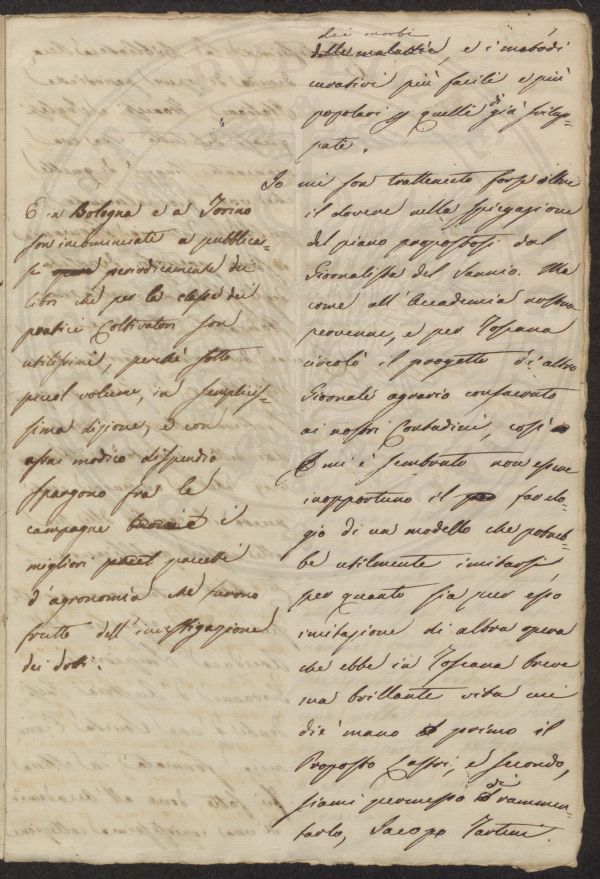 dei morbi
delle malattie, e i metodi
curativi più facili e più
popolari quelli di già svilup-
pate.
Io mi son trattenuto forse oltre
il dovere nella spiegazione
del piano propostosi dal
Giornalista del Sannio. Ma
come all'Accademia nostra
pervenne, e per Toscana
circolò il progetto di altro
Giornale agrario consacrato
ai nostri Contadini, così
mi è sembrato non essere
inopportuno il far elo-
gio di un modello che potreb-
be utilmente imitarsi,
per quanto sia pur esso
imitazione di altra opera
che ebbe in Toscana breve
ma brillante vita cui
diè mano primo il
Proposto Lastri, e secondo,
siami permesso di rammen-
tarlo, Jacopo Tartini.
E in Bologna e a Torino
son incominciate a pubblicar-
si periodicamente dei
libri che per la classe dei
pratici Coltivatori son
utilissimi, perchè sotto
piccol volume, in semplicis-
sima dizione, e con
assai modico dispendio
spargono fra le
campagne i
migliori precetti
d'agronomia che furono
frutto dell'investigazione
dei dotti.